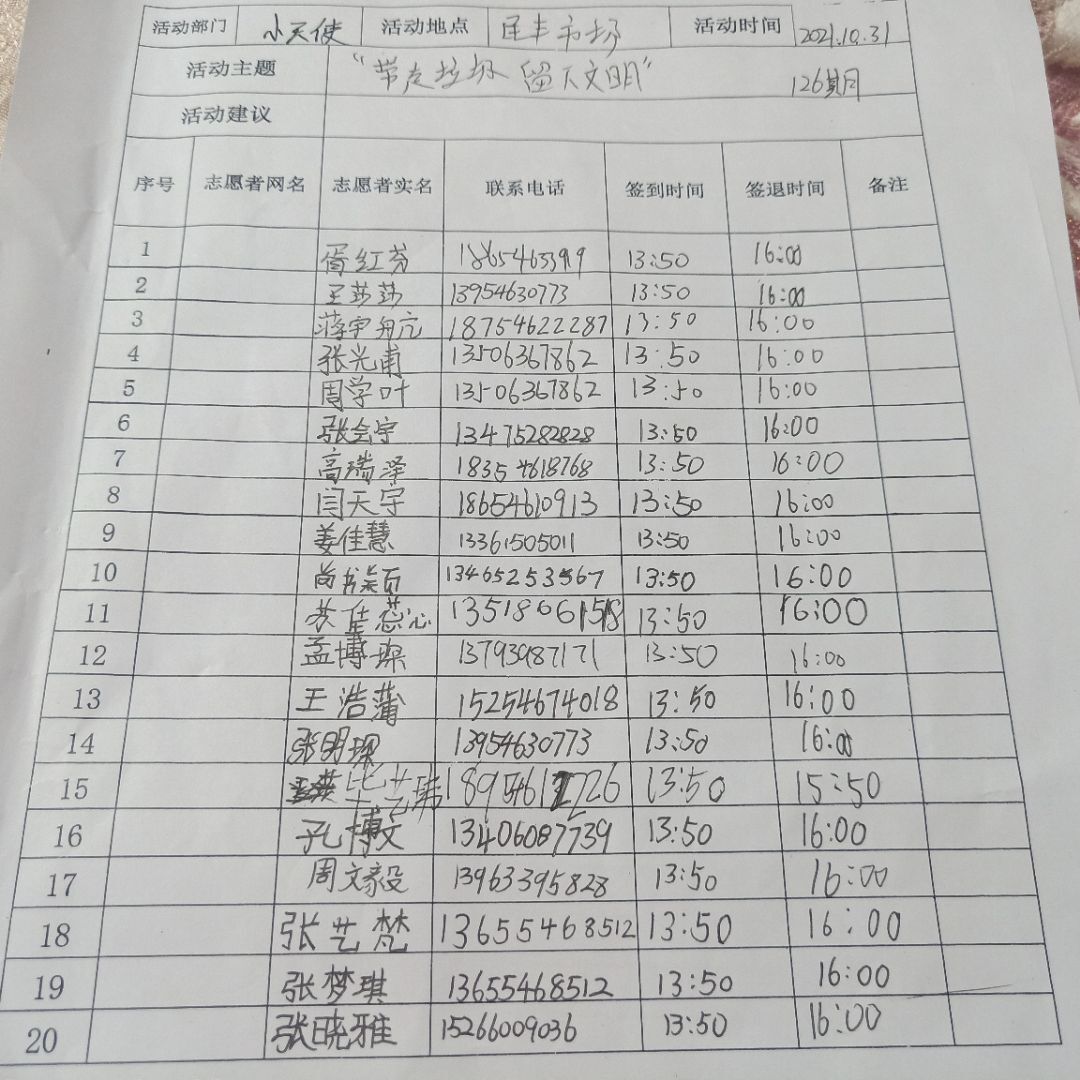 活动部门 小天使 活动地点 民丰市场 活动时间 2021.10.31
活动主题 “带走垃圾 留下文明” 126期
活动建议
序号 志愿者网名 志愿者实名 联系电话 签到时间 签退时间 备注
1 胥红芬 18654653919 13:50 16:00
2 王莎莎 13954630773 13:50 16:00
3 蒋宇舟亢 18754622287 13:50 16:00
4 张光甫 13506367862 13:50 16:00
5 周学叶 13506367862 13:50 16:00
6 张会宇 13475282828 13:50 16:00
7 高瑞泽 18354618768 13:50 16:00
8 闫天宇 18654610913 13:50 16:00
9 姜佳慧 13361505011 13:50 16:00
10 尚书颖 13465253567 13:50 16:00
11 苏佳蕊心 13:50 16:00
12 孟博琛 13793987171 13:50 16:00
13 王浩蒲 15254674018 13:50 16:00
14 张明琛 13954630773 13:50 16:00
15 毕艺玮 13:50 15:50
16 孔博文 13406087739 13:50 16:00
17 周文毅 13963395828 13:50 16:00
18 张艺梵 13655468512 13:50 16:00
19 张梦琪 13655468512 13:50 16:00
20 张晓雅 15266009036 13:50 16:00